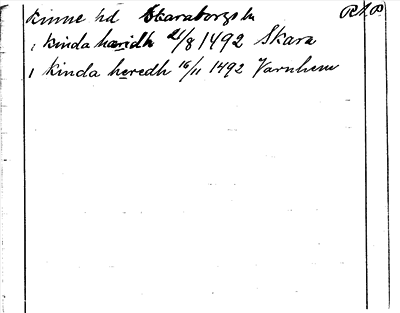 Kinne hd Skaraborgs ln RAP
1 Kinda hæridh 21/8 1492 Skara
1 Kinda heredh 16/11 1492 Varnhem